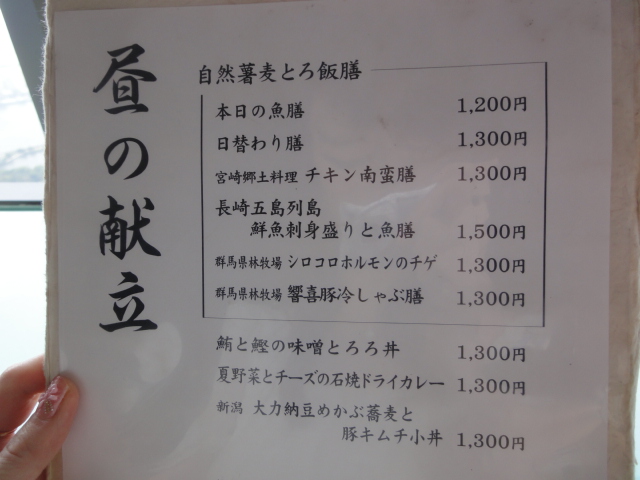 昼の献立
自然薯麦とろ飯膳
本日の魚膳 1,200円
日替わり膳 1,300円
宮崎郷土料理 チキン南蛮膳 1,300円
長崎五島列島
鮮魚刺身盛りと魚膳 1,500円
群馬県林牧場 シロコロホルモンのチゲ 1,300円
群馬県林牧場 響喜豚冷しゃぶ膳 1,300円
鮪と鰹の味噌とろろ丼 1,300円
夏野菜とチーズの石焼ドライカレー 1,300円
新潟 大力納豆めかぶ蕎麦と
豚キムチ小丼 1,300円